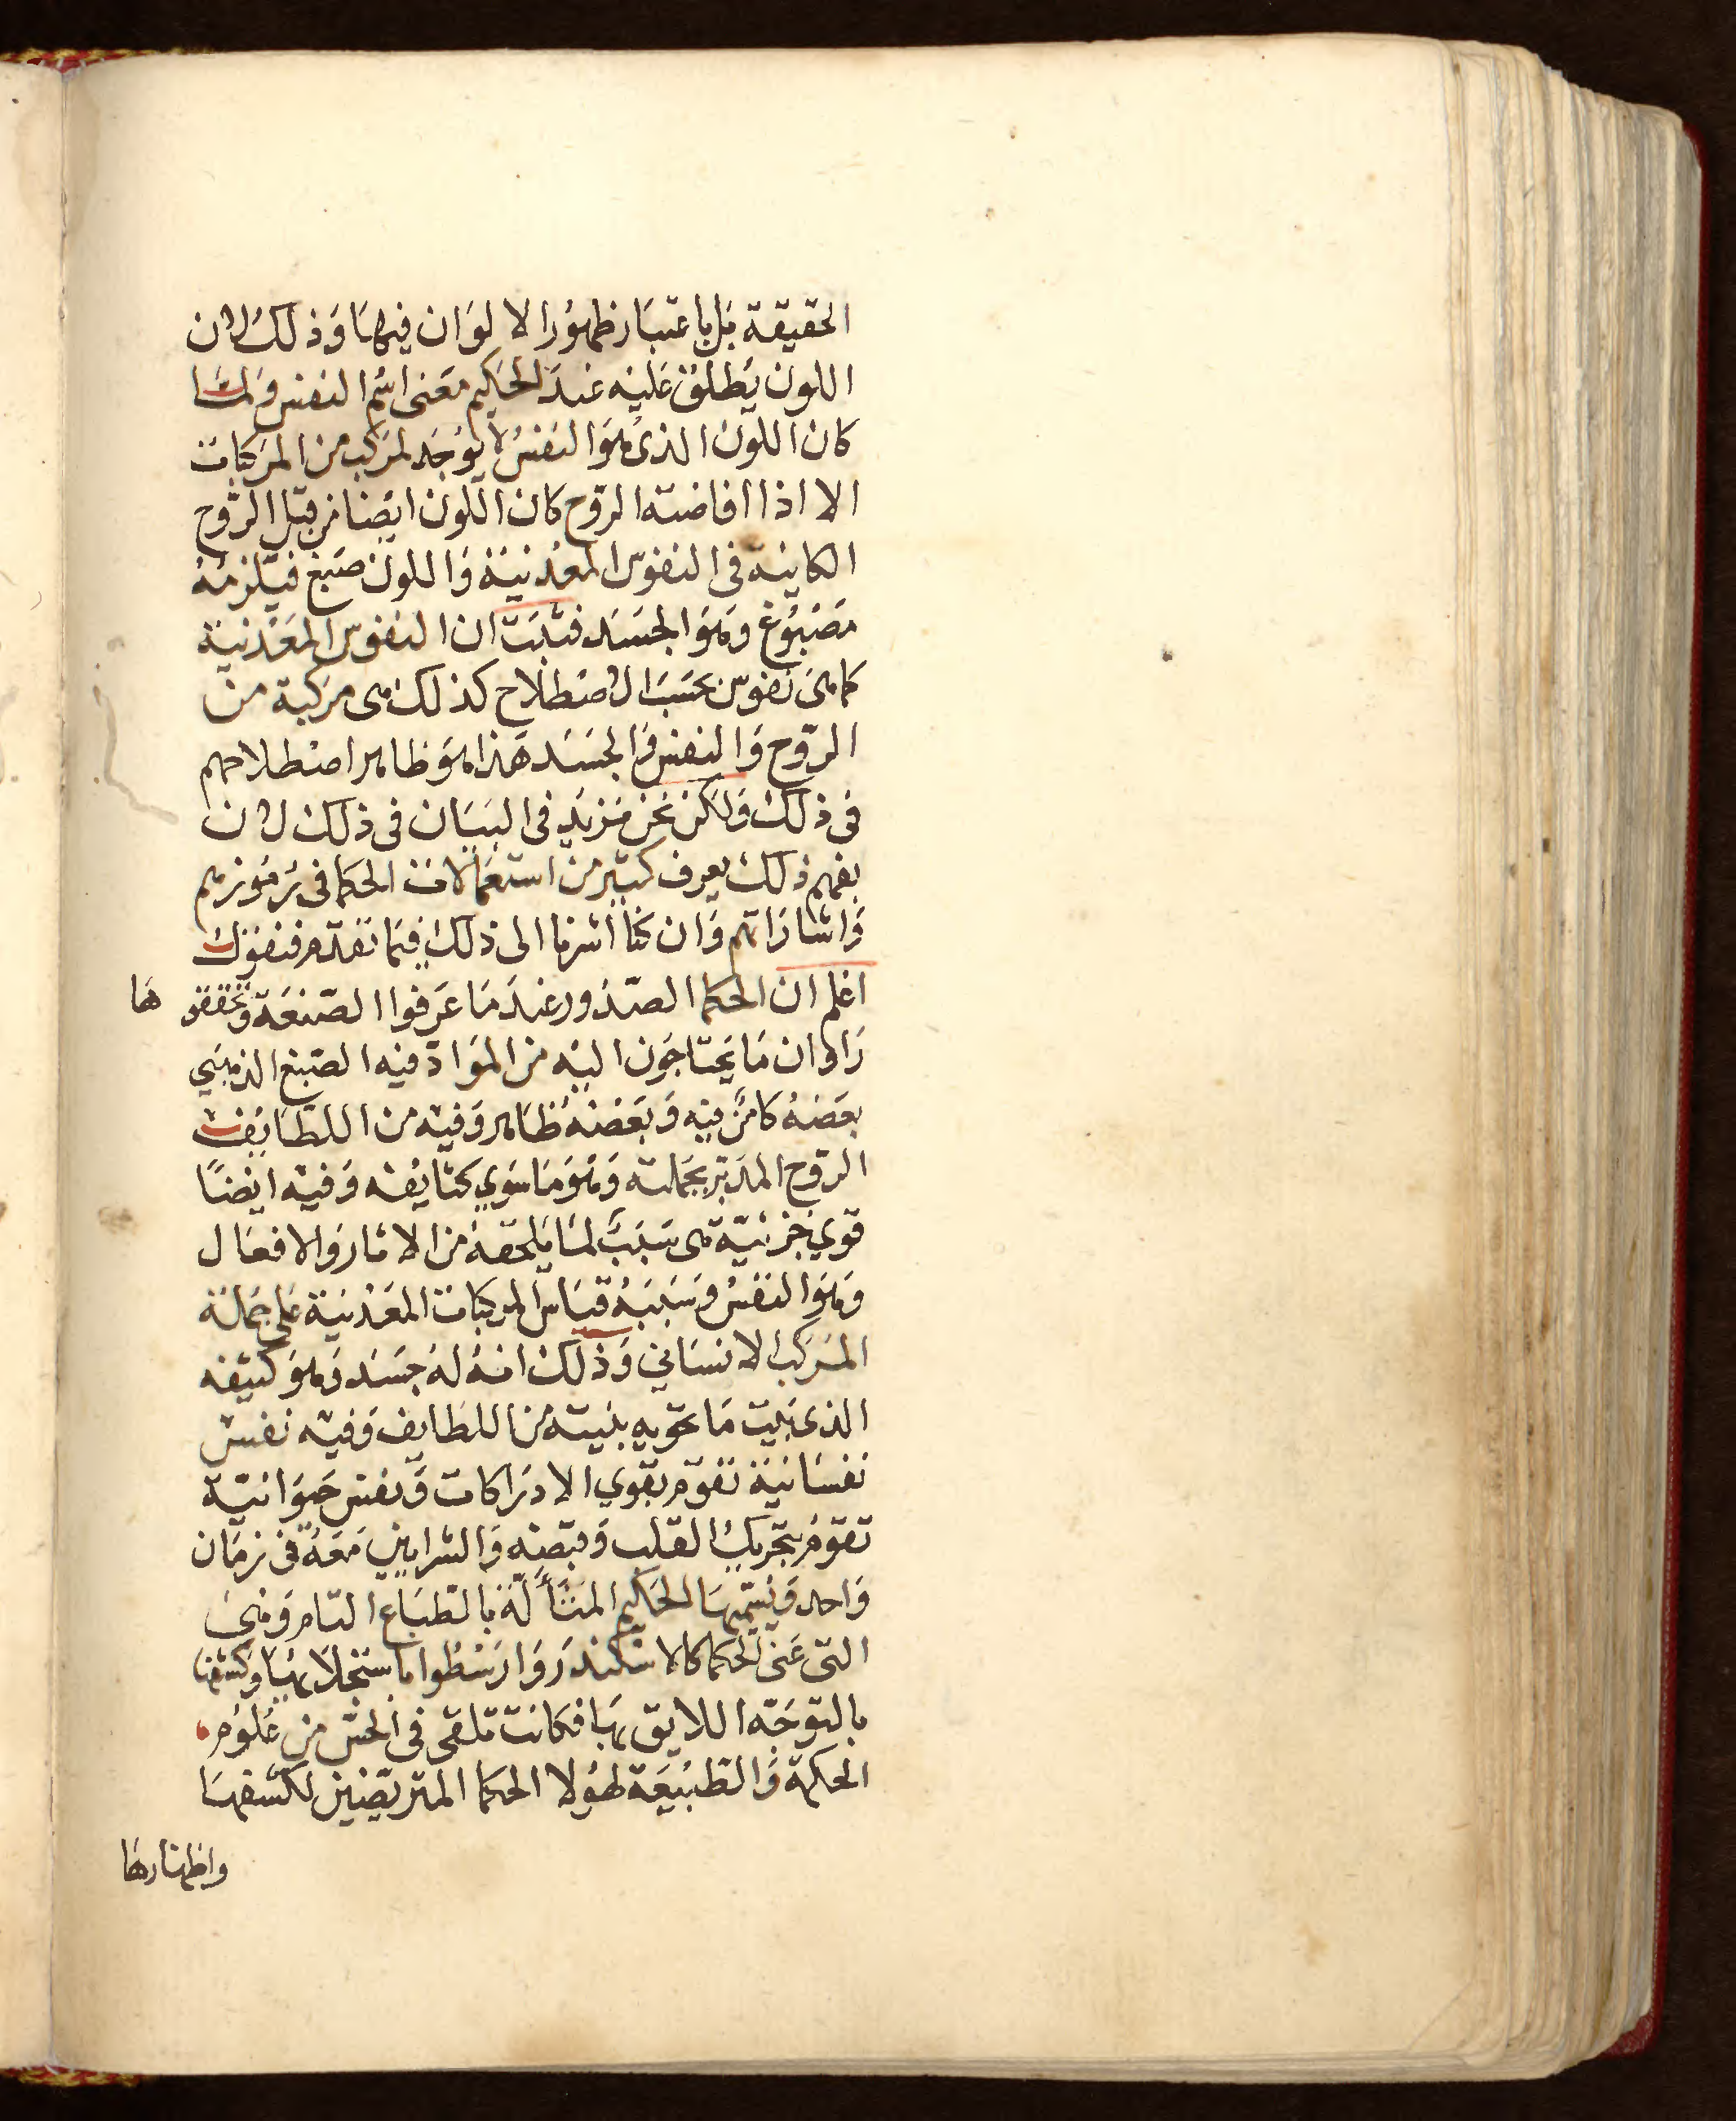 الحقيقة بل باعتبار ظهور الالوان فيها وذلك لان
اللون يطلق عليه عند الحكيم معنى اسم النفس ولما
كان اللون الذى هو النفس لا يوجد لمركب من المركبات
الا اذا افاضته الروح كان اللون ايضا من قبل الروح
الكاينة فى النفوس المعدنية واللون صبغ فيلزمه
مصبوغ وهو الجسد فثبت ان النفوس المعدنية
كما هى نفوس بحسب الاصطلاح كذلك هى مركبة من
الروح والنفس والجسد هذا هو ظاهر اصطلاحهم
فى ذلك ولكن نحن نزيد فى البيان فى ذلك لان
بفهم ذلك يعرف كثير من استعمالات الحكما فى رموزهم
واشاراتهم وان كنا اشرنا الى ذلك فيما تقدم فنقول
اعلم ان الحكما الصدور عند ما عرفوا الصنعة وتحققوها
راوا ان ما يحتاجون اليه من المواد فيه الصبغ الذهبي
بعضه كامن فيه وبعضه ظاهر وفيه من اللطايف
الروح المدبر بجملته وهو ما سوي كثايفه وفيه ايضًا
قوي جزئية هى سبب لما يلحقه من الاثار والافعال
وهو النفس وسببه قياس المركبات المعدنية على جملة
المركب الانساني وذلك انه له جسد وهو كثيفه
الذى بيت ما تحويه بنيته من اللطايف وفيه نفس
نفسانية تقوم بقوي الادراكات ونفس حيوانية
تقوم بتحريك القلب وقبضه والشرايين معه فى زمان
واحد ويسميها الحكيم المتألة بالطباع التام وهي
التى عنى الحكما كالاسكندر وارسطوا باستجلابها وكشفها
بالتوجه اللايق بها فكانت تلقى فى الحس من علوم
الحكمة والطبيعة لهولا الحكما المتريضين لكشفها
واظهارها